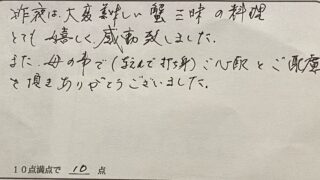 昨夜は、大変美味しい蟹三昧の料理
とても嬉しく感動致しました。
また、母の事で( 打ち身)ご心配とご配慮
を頂きありがとうございました。
10点満点で 10 点